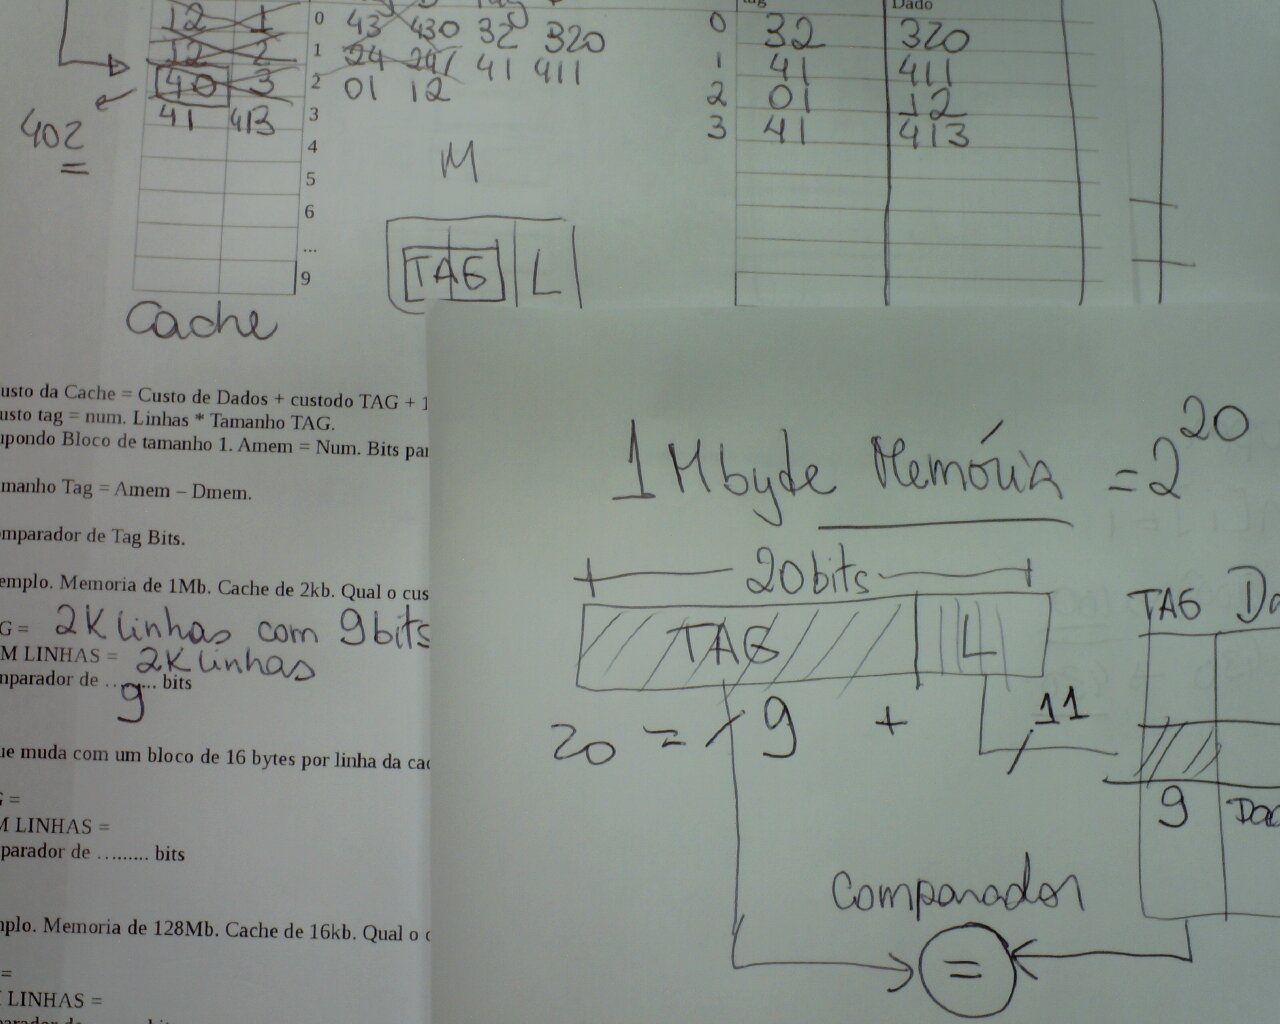 Dado
12 1 0 43 430 32 320
12 2 1 24 241 41 411
40 3 2 01 12
41 413 3
402
4
5
6
...
9
0 32 320
1 41 411
2 01 12
3 41 413
M
TAG L
Cache
usto da Cache = Custo de Dados + custodo TAG + 1
usto tag = num. Linhas * Tamanho TAG.
upondo Bloco de tamanho 1. Amem = Num. Bits par
manho Tag = Amem – Dmem.
omparador de Tag Bits.
emplo. Memoria de 1Mb. Cache de 2kb. Qual o cus
G = 2K linhas com 9 bits
M LINHAS = 2K linhas
mparador de ......... bits
9
ue muda com um bloco de 16 bytes por linha da cac
G =
M LINHAS =
parador de ......... bits
mplo. Memoria de 128Mb. Cache de 16kb. Qual o c
=
I LINHAS =
1 Mbyde Memória = 2 20
20 bits
TAG L
20 = 9 + 11
TAG Da
9 Dad
Comparador
=